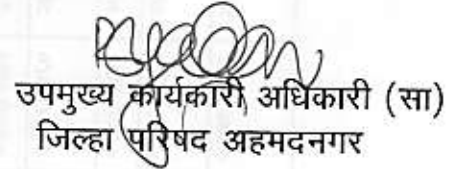 उपमुख्य कार्यकारी अधिकारी (सा)
जिल्हा परिषद अहमदनगर